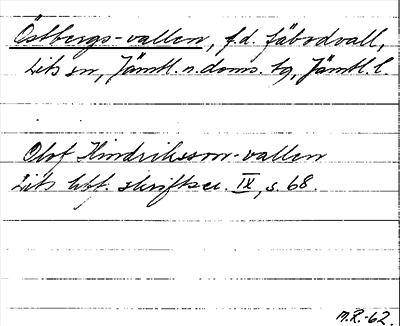 Östbergs-vallen, f.d. fäbodvall,
Lits sn, Jämtl. n. doms. tg, Jämtl. l.
Olof Hindriksson-vallen
Lits hbf. skriftser. IX, s. 68.
M.R.-62.